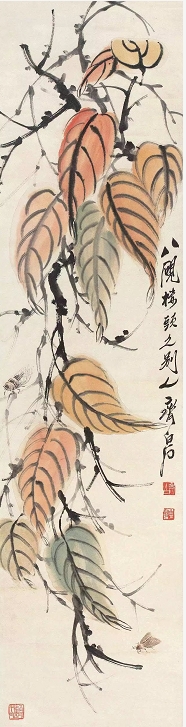 八硯樓頭久別人齊白石